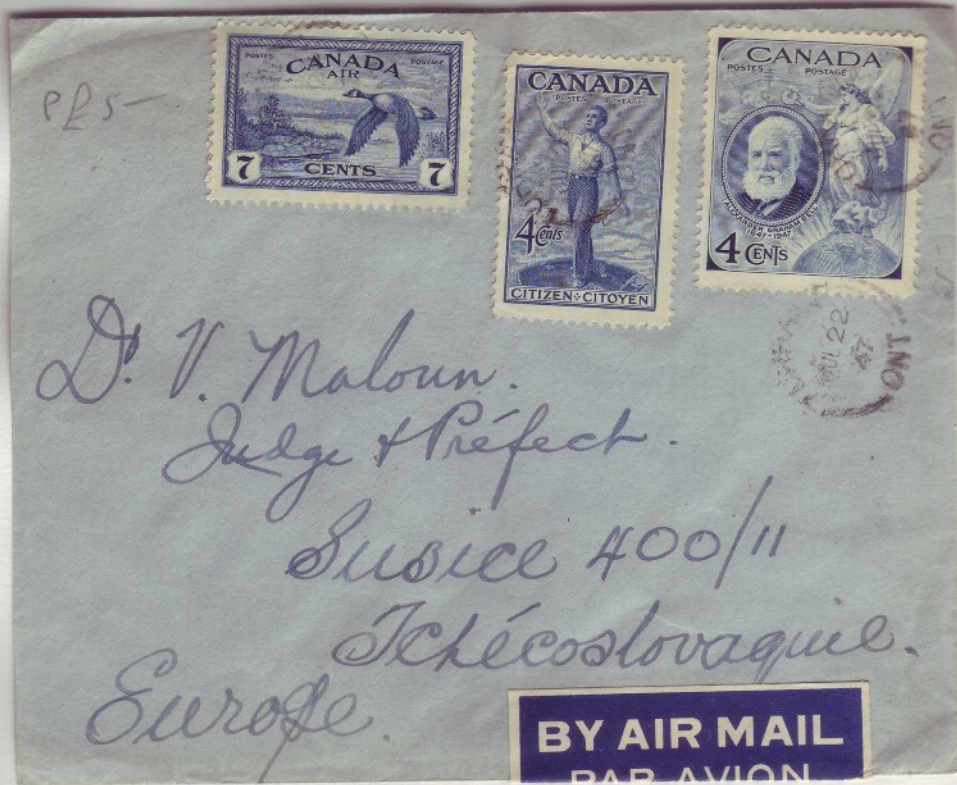 PR 5-
POSTES POSTAGE
CANADA
AIR
7 CENTS 7
CANADA
POSTES POSTAGE
4 Cents
CITIZEN CITOYEN
CANADA
POSTES POSTAGE
ALEXANDER GRAHAM BELL
1847-1947
4 CENTS
22
47
ONT
ONT
Dr. V. Maloun.
Judge & Préfect.
Susice 400/11
Tchécoslovaquie.
Europe.
BY AIR MAIL
PAR AVION